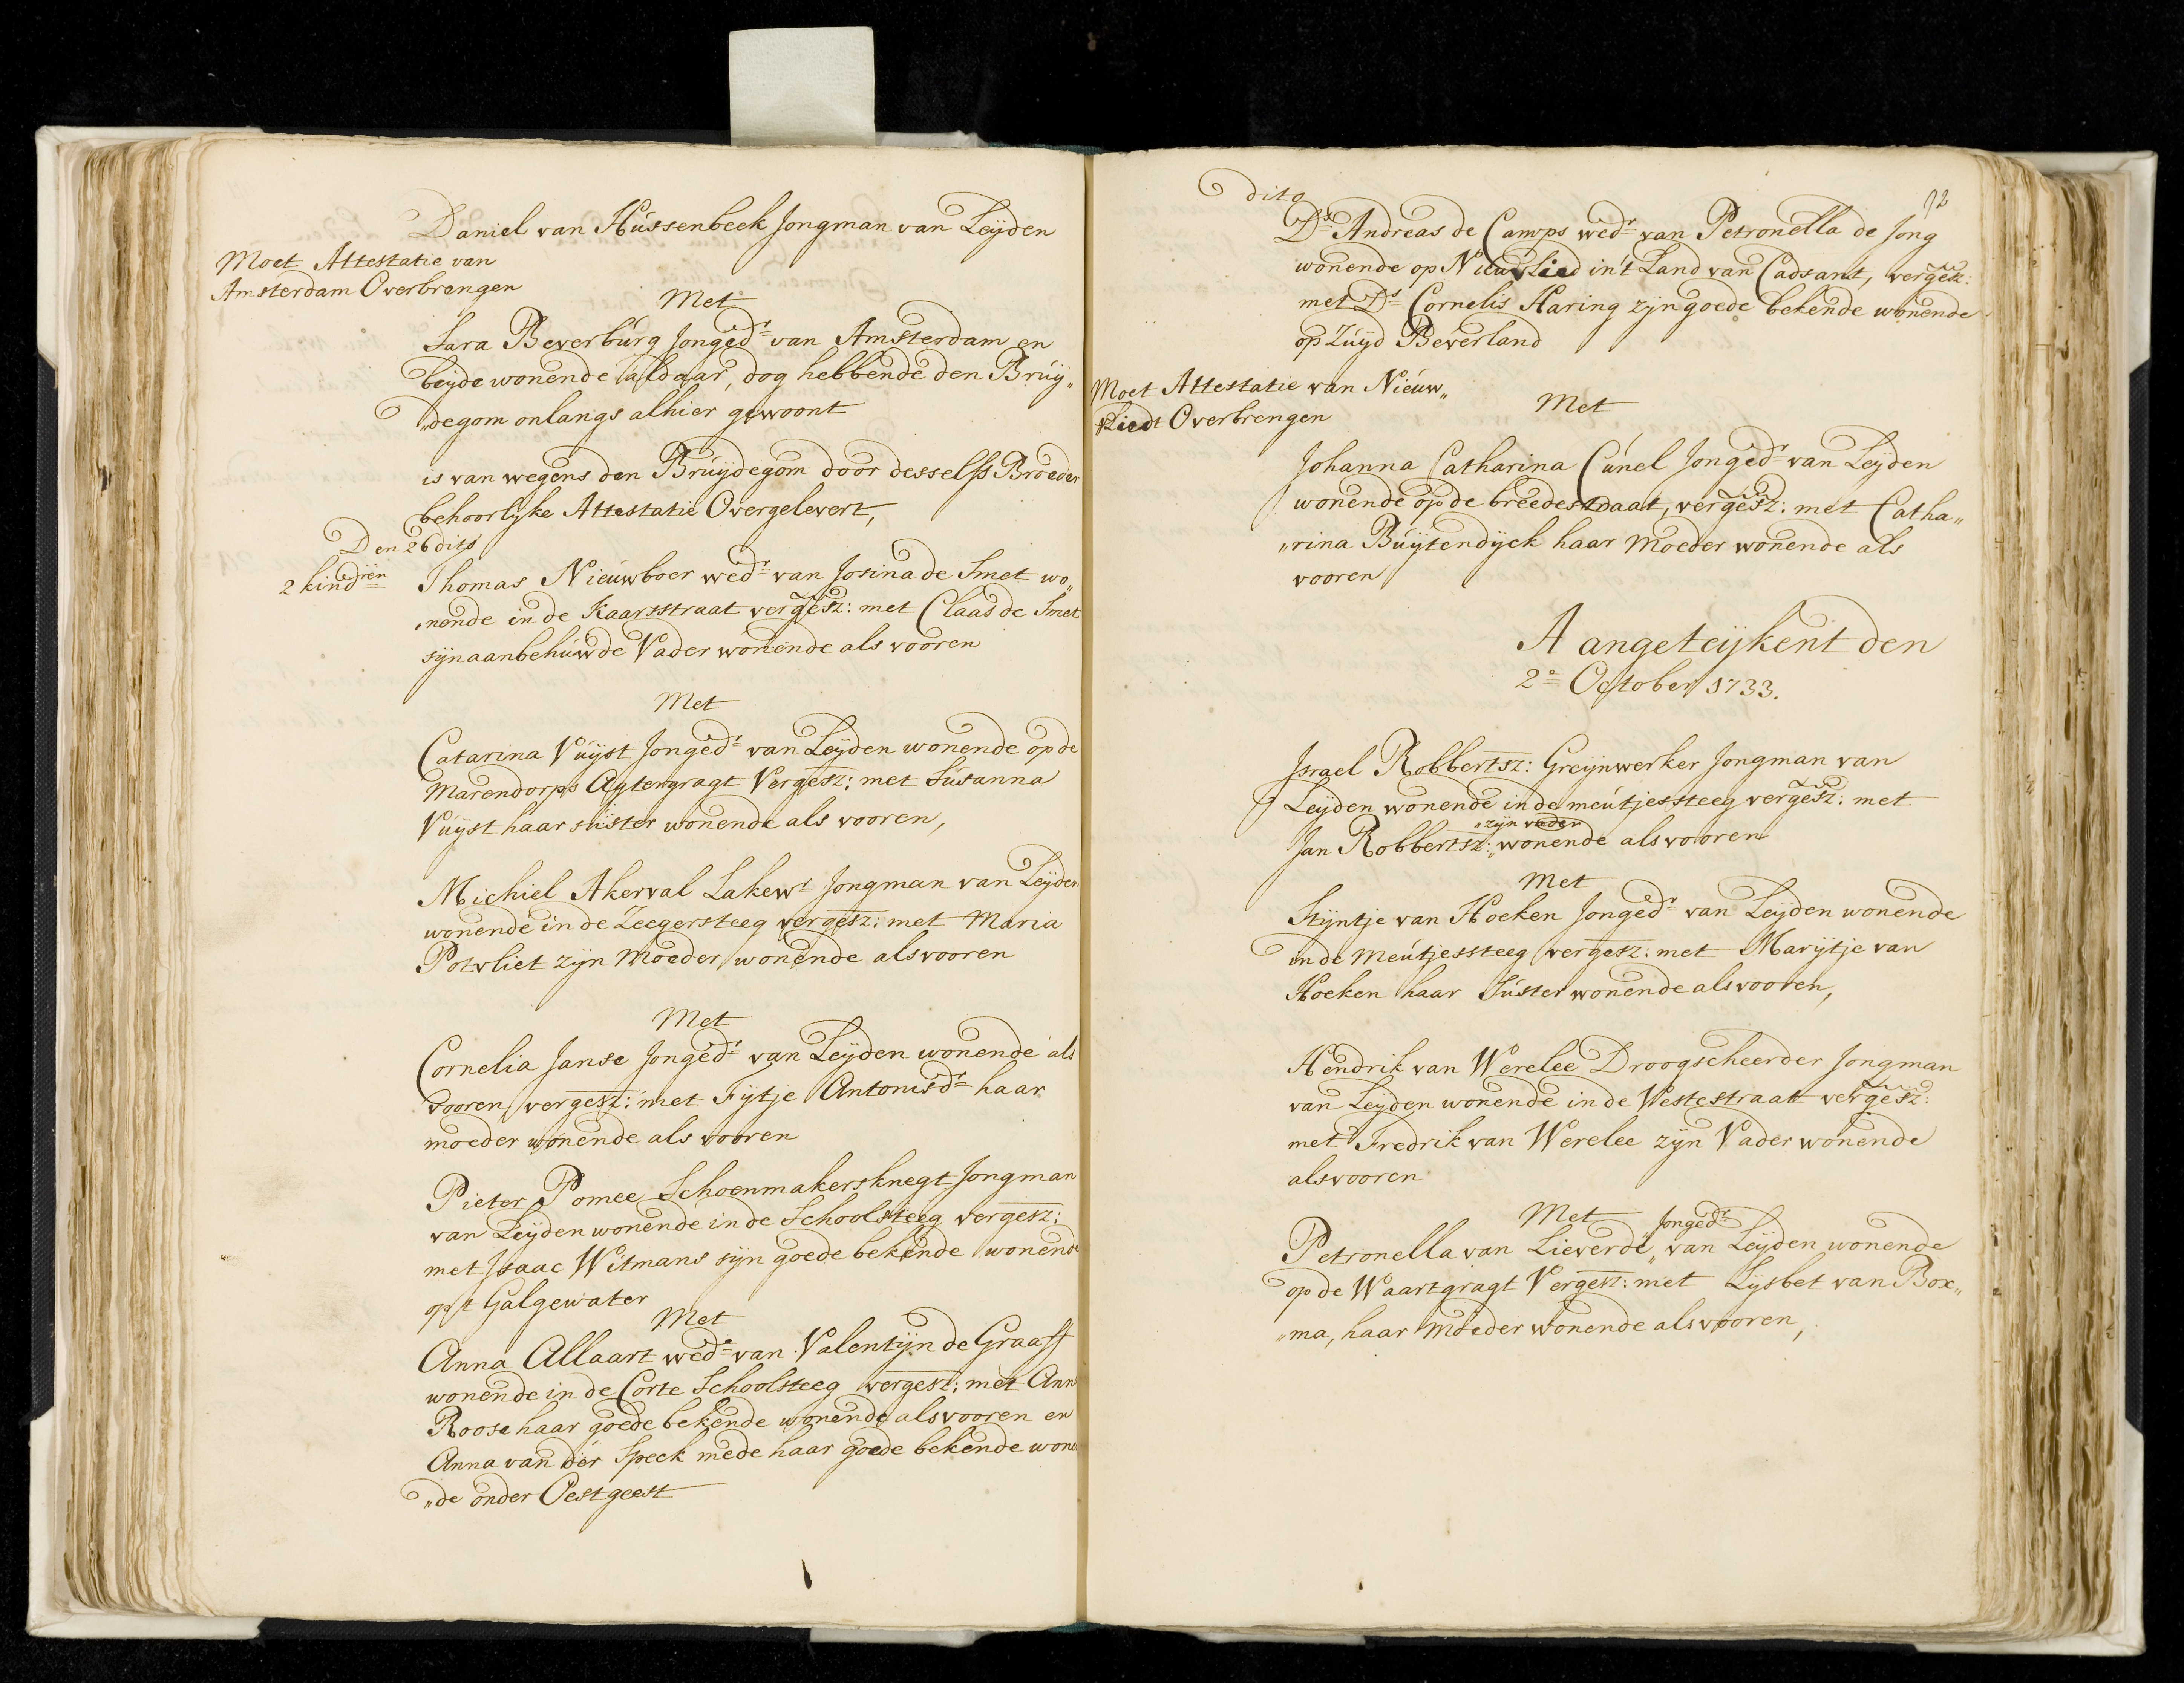 Daniel van Hussenbeek Jongman van Leyden
Moet Attestatie van
Amsterdam Overbrengen
Met
Sara Beverburg Jonged.r van Amsterdam en
beyde wonende aldaar, dog hebbende den Bruy„
„degom onlangs alhier gewoont
is van wegens den Bruydegom door desselfs Broeder
behoorlyke Attestatie Overgelevert,
Den 26 dito
2 kind.ren
Thomas Nieuwboer wed.r van Josina de Smet wo„
„nende in de Kaarsstraat vergesz: met Claas de Smet
syn aanbehuwde Vader wonende als vooren
Met
Catarina Vuyst Jonged.r van Leyden wonende op de
Marendorps Agtergragt Vergesz: met Susanna
Vuyst haar suster wonende als vooren,
Michiel Akerval Lakew.r Jongman van Leyden
wonende in de Zeegersteeg vergesz: met Maria
Potvliet zyn Moeder wonende als vooren
Met
Cornelia Janse Jonged.r van Leyden wonende als
vooren vergesz: met Fytje Antonisd.r haar
moeder wonende als vooren
Pieter Pomee Schoenmakersknegt Jongman
van Leyden wonende in de Schoolsteeg vergesz:
met Isaac Witmans syn goede bekende wonende
op 't Galgewater
Met
Anna Allaart wed.e van Valentyn de Graaff
wonende in de Corte Schoolsteeg vergesz: met Ann
Roose haar goede bekende wonende als vooren en
Anna van der Speck mede haar goede bekende wone
„de onder Oestgeest
dito
92
D.s Andreas de Camps wed.r van Petronella de Jong
wonende op Nieuvlied in't Land van Cadsant, vergesz:
met D.s Cornelis Haring zyn goede bekende wonende
op Zuyd Beverland
Moet Attestatie van Nieuw„
vliedt Overbrengen
Met
Johanna Catharina Cunel Jonged.r van Leyden
wonende op de breedestraat, vergesz: met Catha„
„rina Buytendyck haar Moeder wonende als
vooren
Aangeteykent den
2.e October 1733.
Israel Robbertsz: Greynwerker Jongman van
Leyden wonende in de meutjessteeg vergesz: met
„zyn vader
Jan Robbertsz:„ wonende als vooren
Met
Styntje van Hoeken Jonged.r van Leyden wonende
in de Meutjessteeg vergesz: met Marytje van
Hoeken haar Suster wonende als vooren,
Hendrik van Werelee Droogscheerder Jongman
van Leyden wonende in de Vestestraat vergesz:
met Fredrik van Werelee zyn Vader wonende
als vooren
Met
Jonged.r
Petronella van Lieverde„ van Leyden wonende
op de Waartgragt Vergesz: met Lysbet van Box„
„ma, haar Moeder wonende als vooren,